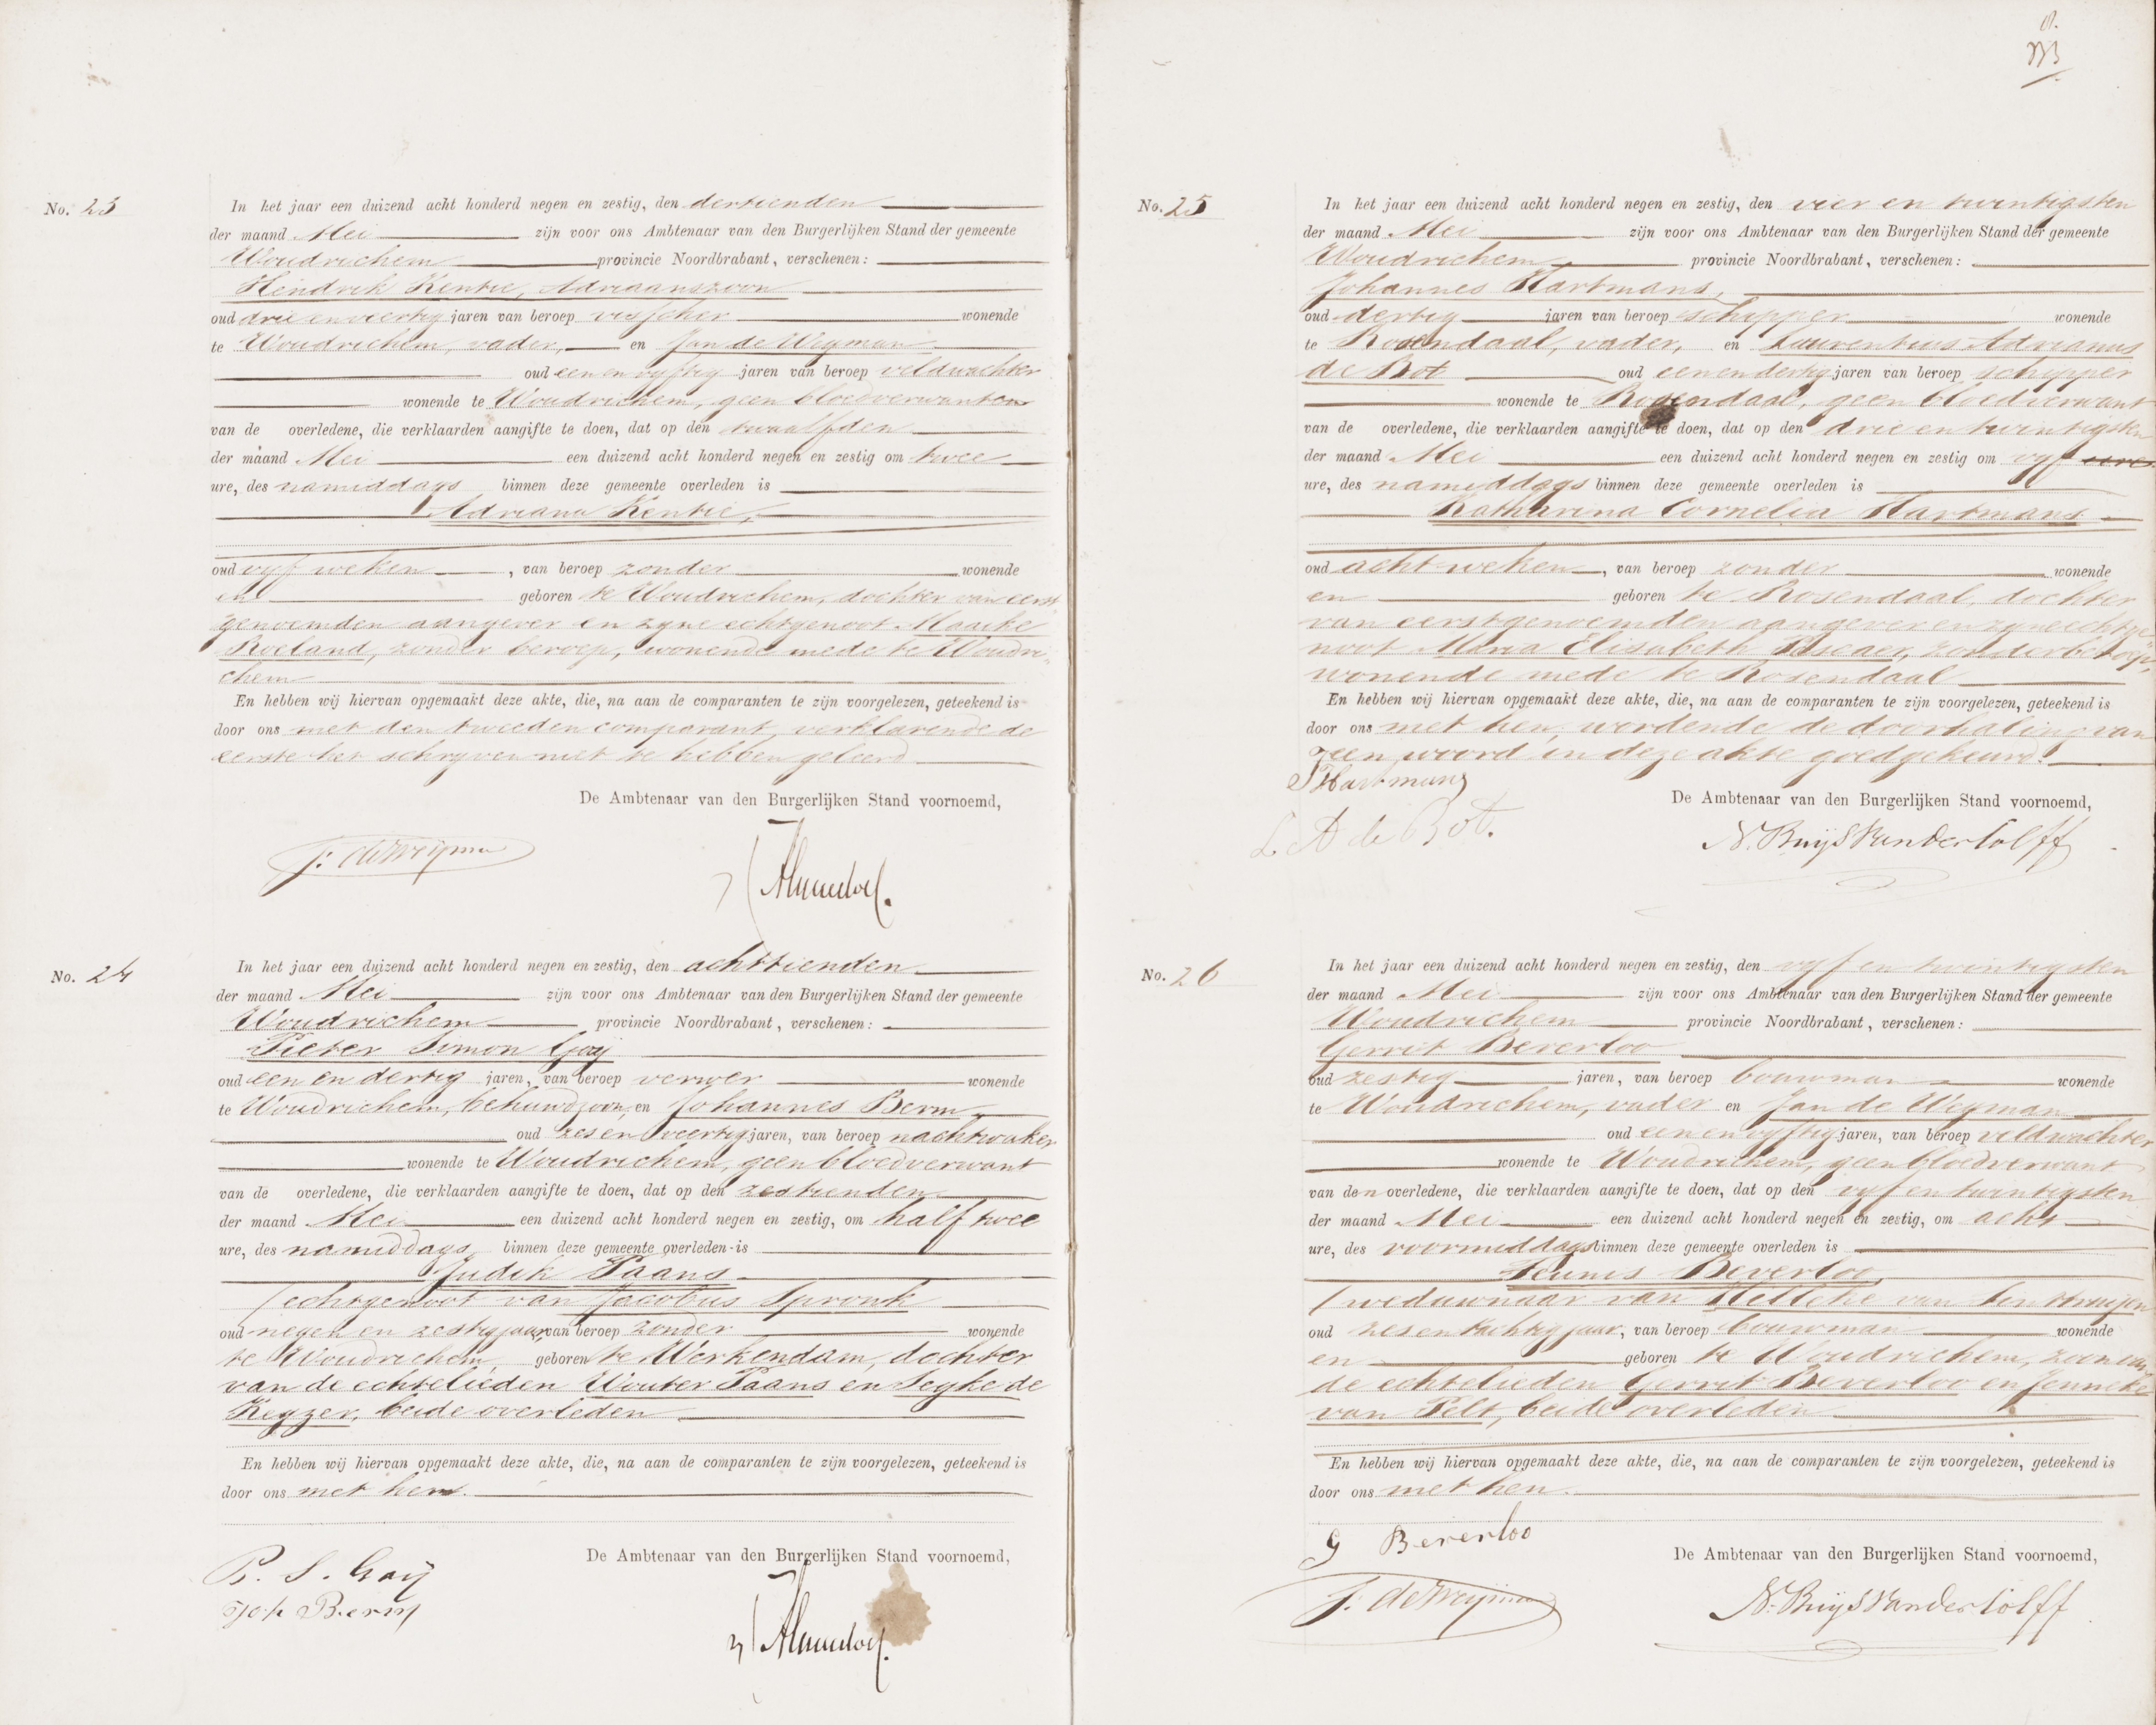 No. 23
In het jaar een duizend acht honderd negen en zestig, den dertienden
der maand Mei zijn voor ons Ambtenaar van den Burgerlijken Stand der gemeente
Woudrichem provincie Noordbrabant, verschenen:
Hendrik Kentie, Adriaanszoon
oud drie en veertig jaren van beroep visscher wonende
te Woudrichem, vader, en Jan de Weyman
oud een en vyftig jaren van beroep veldwachter
wonende te Woudrichem, geen bloedverwanten
van de overledene, die verklaarden aangifte te doen, dat op den twaalfden
der maand Mei een duizend acht honderd negen en zestig om twee
ure, des namiddags binnen deze gemeente overleden is
Adriana Kentie,
oud vyf weken, van beroep zonder wonende
en geboren te Woudrichem, dochter van eerst
genoemden aangever en zyne echtgenoot Maaike
Roeland, zonder beroep, wonende mede te Woudri„
chem
En hebben wij hiervan opgemaakt deze akte, die, na aan de comparanten te zijn voorgelezen, geteekend is
door ons met den tweeden comparant, verklarende de
eerste het schryven niet te hebben geleerd
De Ambtenaar van den Burgerlijken Stand voornoemd,
J: de Weijman
No. 24
In het jaar een duizend acht honderd negen en zestig, den achttienden
der maand Mei zijn voor ons Ambtenaar van den Burgerlijken Stand der gemeente
Woudrichem provincie Noordbrabant, verschenen:
Pieter Simon Gay
oud een en dertig jaren, van beroep verwer wonende
te Woudrichem, behuwdzoon, en Johannes Berm
oud zes en veertig jaren, van beroep nachtwaker
wonende te Woudrichem, geen bloedverwant
van de overledene, die verklaarden aangifte te doen, dat op den zestienden
der maand Mei een duizend acht honderd negen en zestig, om half twee
ure, des namiddags binnen deze gemeente overleden is
Judik Paans
echtgenoot van Jacobus Spronk
oud negen en zestig jaar, van beroep zonder wonende
te Woudrichem, geboren te Werkendam, dochter
van de echtelieden Wouter Paans en Seyke de
Keyzer, beide overleden
En hebben wij hiervan opgemaakt deze akte, die, na aan de comparanten te zijn voorgelezen, geteekend is
door ons met hen.
De Ambtenaar van den Burgerlijken Stand voornoemd,
P. S. Gaij
Joh Berm
No. 25
In het jaar een duizend acht honderd negen en zestig, den vier en twintigsten
der maand Mei zijn voor ons Ambtenaar van den Burgerlijken Stand der gemeente
Woudrichem provincie Noordbrabant, verschenen:
Johannes Hartmans,
oud dertig jaren van beroep schipper wonende
te Rosendaal, vader, en Laurentius Adrianus
de Bot oud een en dertig jaren van beroep schipper
wonende te Rosendaal, geen bloedverwant
van de overledene, die verklaarden aangifte te doen, dat op den drie en twintigsten
der maand Mei een duizend acht honderd negen en zestig om vyf ure
ure, des namiddags binnen deze gemeente overleden is
Katharina Cornelia Hartmans
oud acht weken, van beroep zonder wonende
en geboren te Rosendaal, dochter
van eerstgenoemden aangever en zyne echtge
noot Maria Elisabeth, zonder beroep,
wonende mede te Rosendaal
En hebben wij hiervan opgemaakt deze akte, die, na aan de comparanten te zijn voorgelezen, geteekend is
door ons met hen, wordende de doorhaling van
een woord in deze akte goedgekeurd.
J Hartmans
De Ambtenaar van den Burgerlijken Stand voornoemd,
L A de Bot.
N. Buijs van der Colff
No. 26
In het jaar een duizend acht honderd negen en zestig, den vyf en twintigsten
der maand Mei zijn voor ons Ambtenaar van den Burgerlijken Stand der gemeente
Woudrichem provincie Noordbrabant, verschenen:
Gerrit Beverloo
oud zestig jaren, van beroep bouwman wonende
te Woudrichem, vader en Jan de Weyman
oud een en vyftig jaren, van beroep veldwachter
wonende te Woudrichem, geen bloedverwant
van den overledene, die verklaarden aangifte te doen, dat op den vyf en twintigsten
der maand Mei een duizend acht honderd negen en zestig, om acht
ure, des voormiddags binnen deze gemeente overleden is
Teunis Beverloo
weduwnaar van
oud zes en tachtig jaar, van beroep bouwman wonende
en geboren te Woudrichem, zoon van
de echtelieden Gerrit Beverloo en Jenneke
van Pelt, beide overleden
En hebben wij hiervan opgemaakt deze akte, die, na aan de comparanten te zijn voorgelezen, geteekend is
door ons met hen.
G Beverloo
De Ambtenaar van den Burgerlijken Stand voornoemd,
J: de Weijman
N. Buijs van der Colff